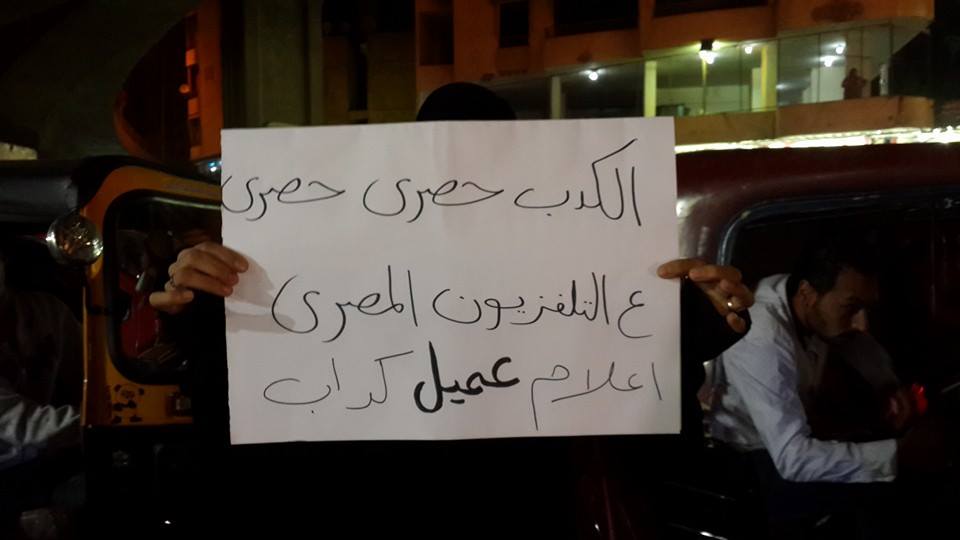 الكدب حصرى حصرى
ع التلفزيون المصرى
اعلام عميل كداب